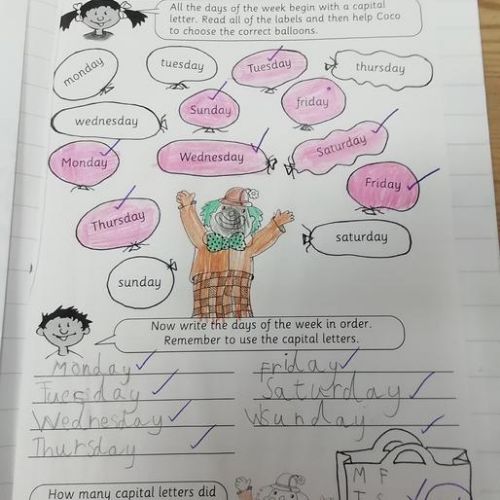 All the days of the week begin with a capital
letter. Read all of the labels and then help Coco
to choose the correct balloons.
monday
tuesday
Tuesday
thursday
Sunday
friday
wednesday
Monday
Wednesday
Saturday
Friday
Thursday
saturday
sunday
Now write the days of the week in order.
Remember to use the capital letters.
Monday
Friday
Tuesday
Saturday
Wednesday
Sunday
Thursday
How many capital letters did
M F
T S